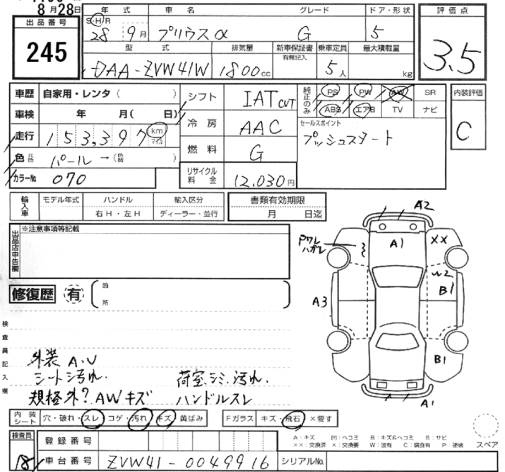 8月28日
出品番号
245
年式 車名 グレード ドア・形状
S H R
28 9月 プリウスα G 5
型式 排気量 新車保証書 乗車定員 最大積載量
有無記入
DAA-ZVW41W 1800cc 5人 kg
評価点
3.5
車歴 自家用・レンタ( )
車検 年 月( 日)
走行 153,397 km マイル
色 元色 パール→(色替 )
カラーNo 070
シフト IAT CVT
冷房 AAC
燃料 G
リサイクル料金 12,030円
純正のみ
PS PW AW SR
ABS エアB TV ナビ
セールスポイント
プッシュスタート
内装評価
C
輸入車 モデル年式 ハンドル 輸入区分
右H・左H ディーラー・並行
書類有効期限
月 日迄
出品店申告欄
※注意事項等記載
修復歴 有 箇所
検査員記入欄
外装A.U
シート汚れ. 荷室シミ、汚れ.
規格外? AWキズ ハンドルスレ
A2
A1
XX
ワレ
ハガレ
W2
B1
A3
B1
A1
内装シート 穴・破れ・スレ コゲ・汚れ キズ 黄ばみ Fガラス キズ・飛石 ×要す
検査員
登録番号
車台番号 ZVW41-0049916 シリアルNo.
スペア